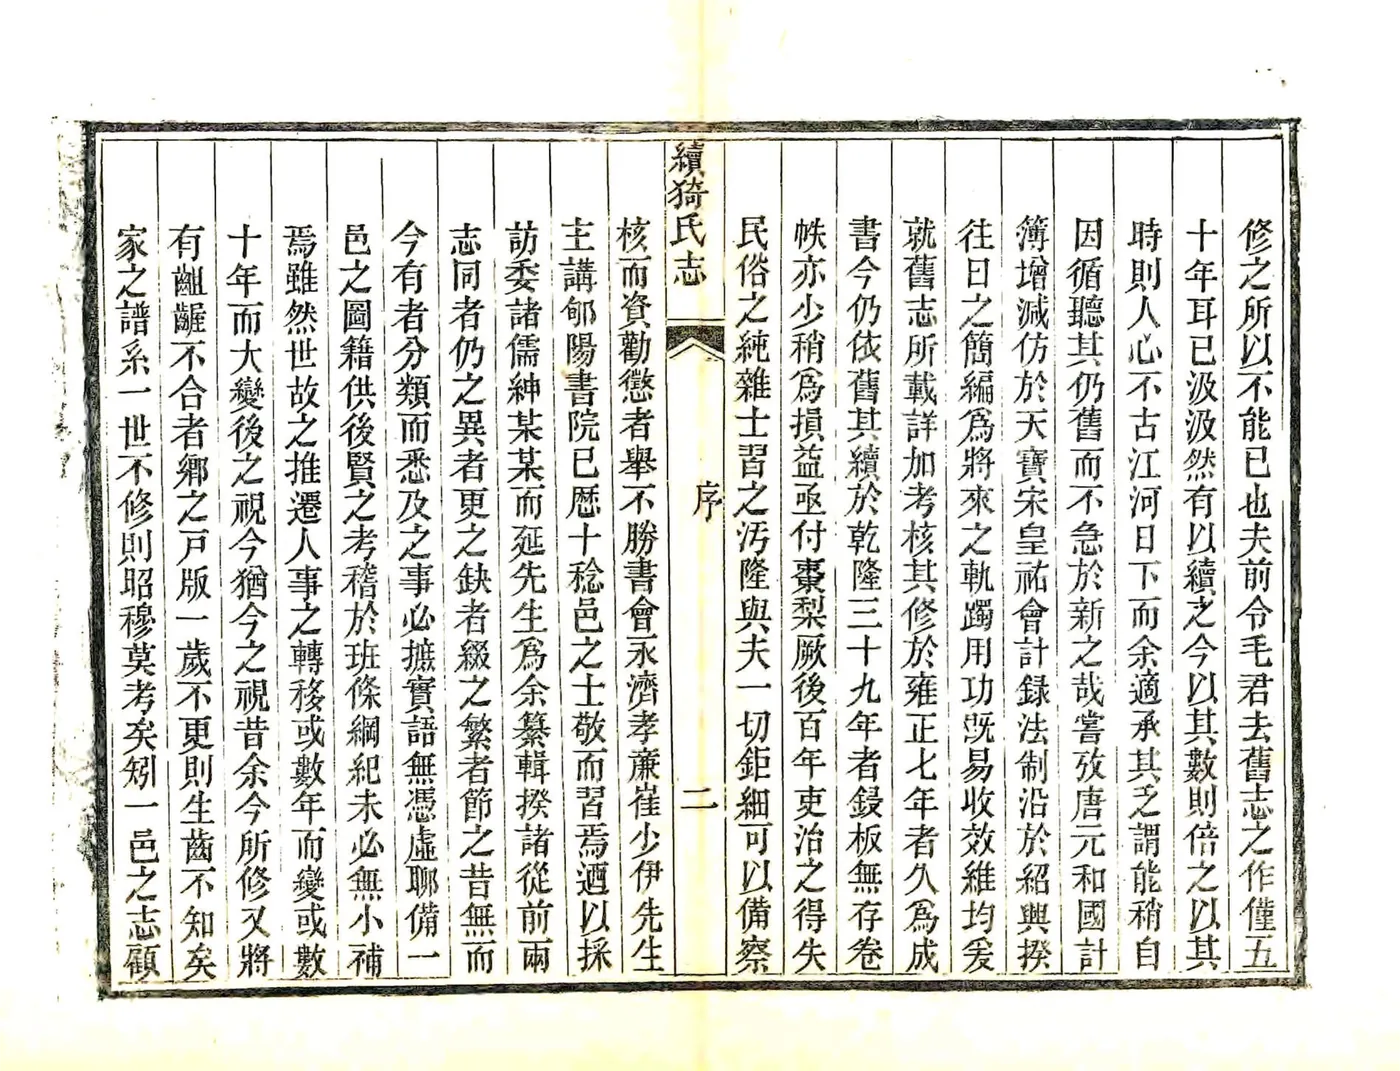 修之所以不能已也夫前令毛君去舊志之作僅五
十年耳已汲汲然有以續之今以其數則倍之以其
時則人心不古江河日下而余適承其乏謂能稍自
因循聽其仍舊而不急於新之哉嘗攷唐元和國計
簿增減仿於天寶宋皇祐會計録法制沿於紹興揆
往日之簡編爲將來之軌躅用功旣易收效維均爰
就舊志所載詳加考核其修於雍正七年者久爲成
書今仍依舊其續於乾隆三十九年者鋟板無存卷
帙亦少稍爲損益亟付棗梨厥後百年吏治之得失
民俗之純雜士習之汚隆與夫一切鉅細可以備察
續猗氏志
序
二
核而資勸懲者舉不勝書會永濟孝亷崔少伊先生
主講郇陽書院已歷十稔邑之士敬而習焉迺以採
訪委諸儒紳某某而延先生爲余纂輯揆諸從前兩
志同者仍之異者更之缺者綴之繁者節之昔無而
今有者分類而悉及之事必摭實語無憑虛聊備一
邑之圖籍供後賢之考稽於班條綱紀未必無小補
焉雖然世故之推遷人事之轉移或數年而變或數
十年而大變後之視今猶今之視昔余今所修又將
有齟齬不合者鄉之戸版一歲不更則生齒不知矣
家之譜系一世不修則昭穆莫考矣矧一邑之志顧